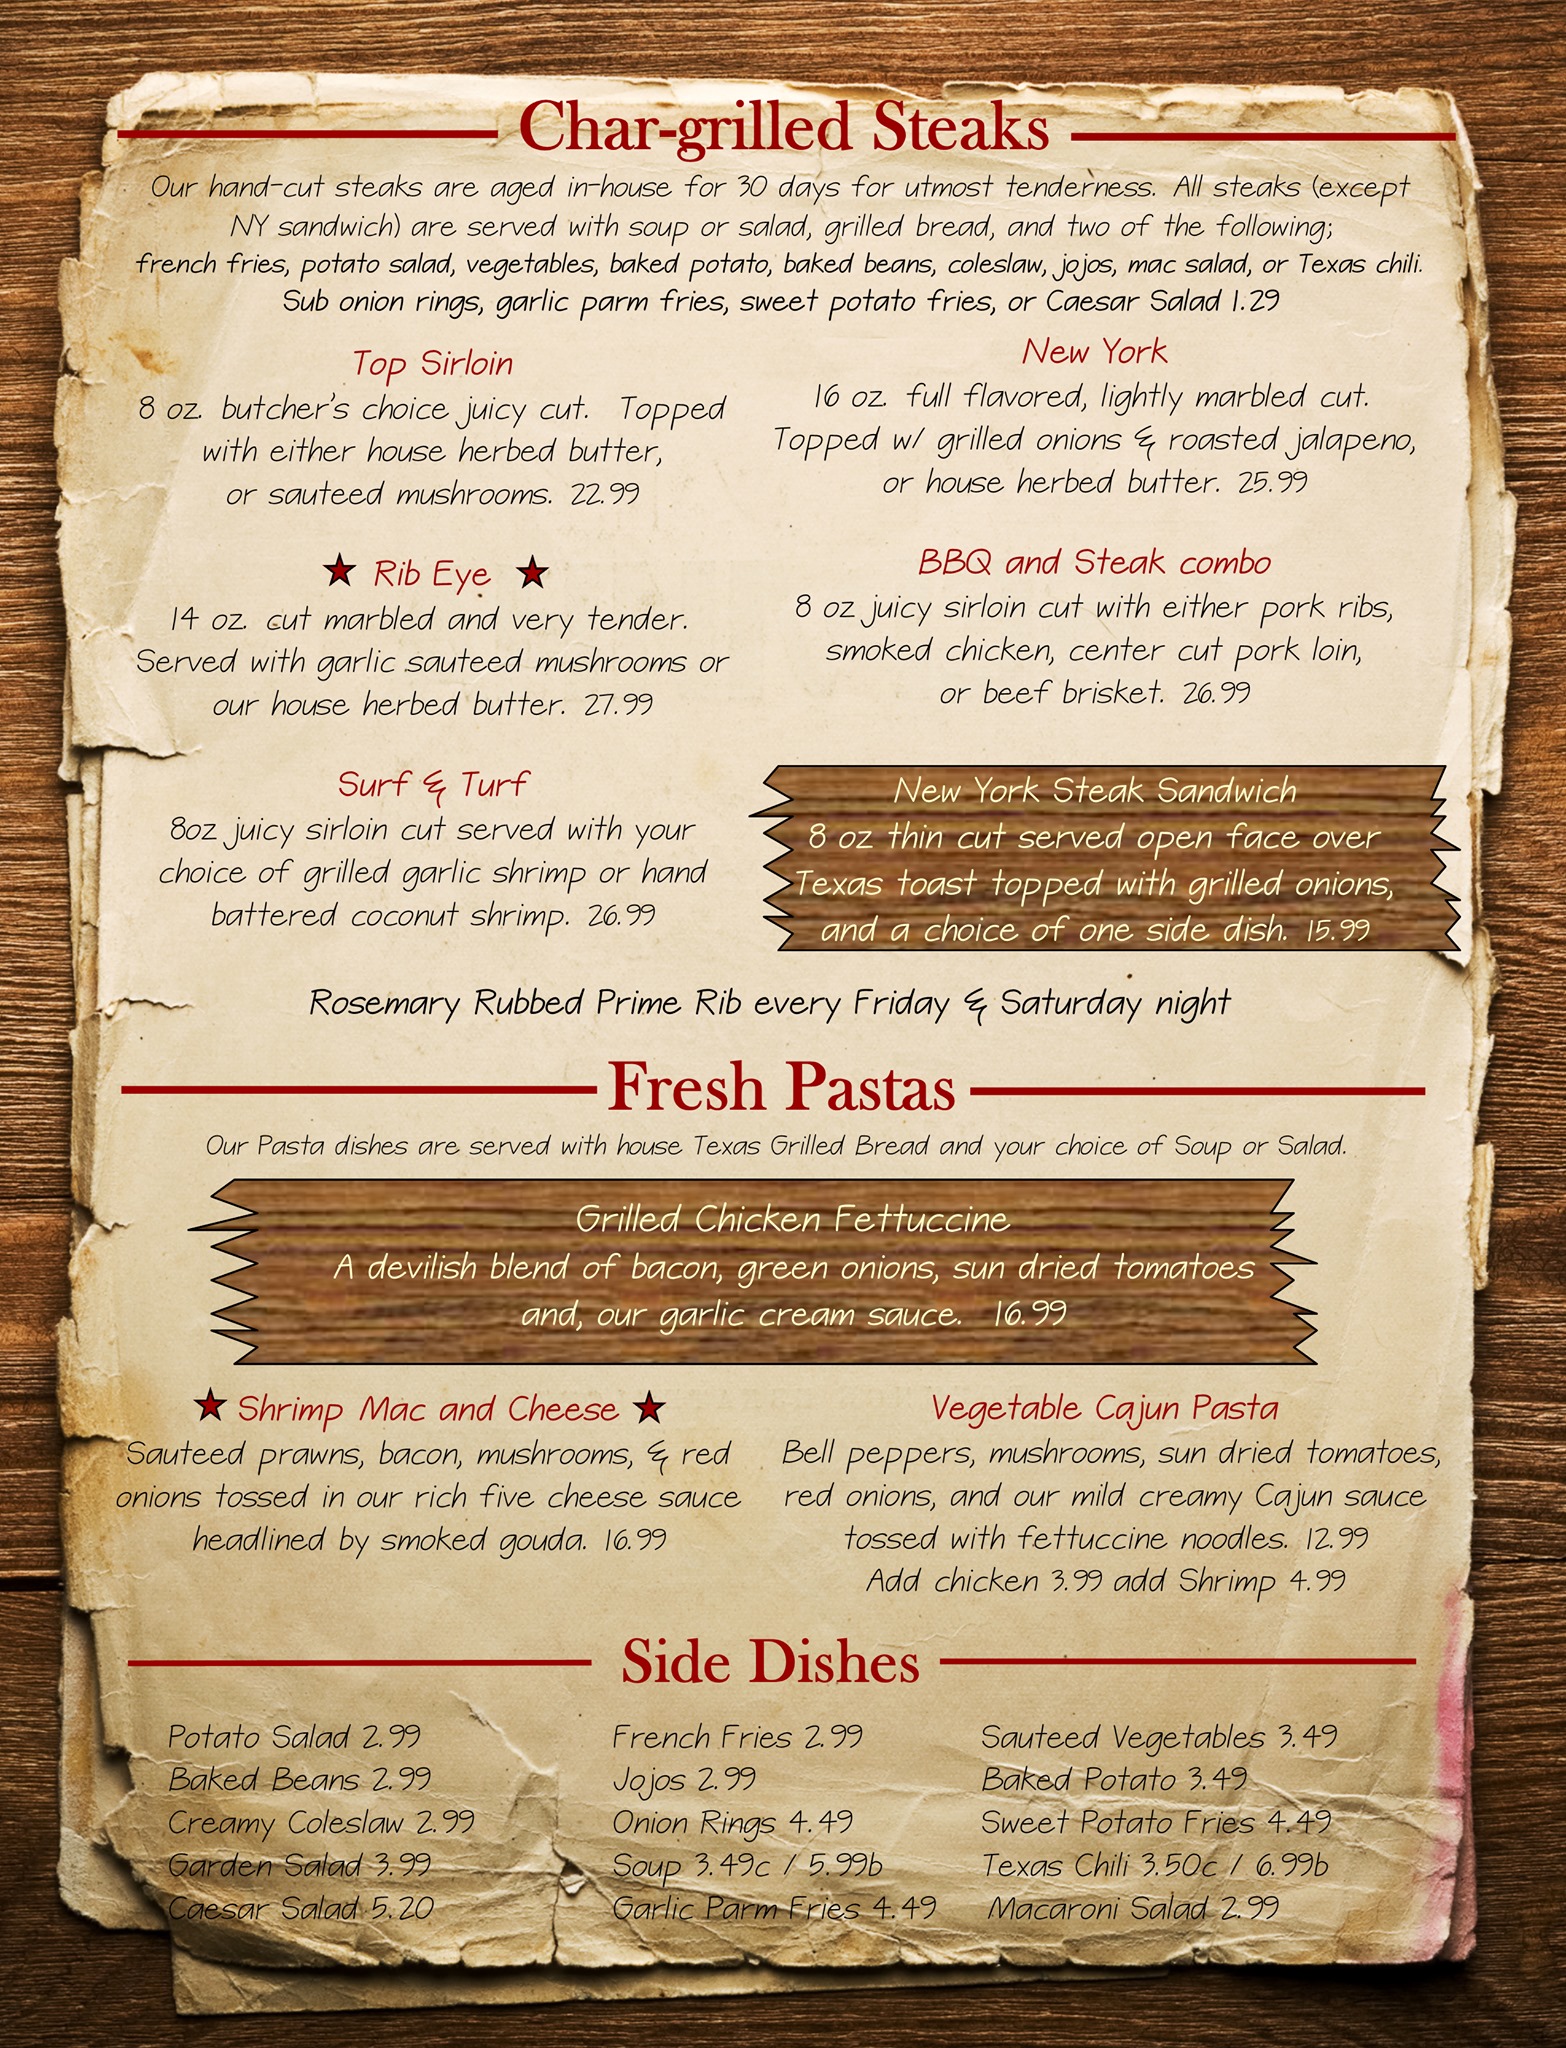 Char-grilled Steaks
Our hand-cut steaks are aged in-house for 30 days for utmost tenderness. All steaks (except
NY sandwich) are served with soup or salad, grilled bread, and two of the following;
french fries, potato salad, vegetables, baked potato, baked beans, coleslaw, jojos, mac salad, or Texas chili.
Sub onion rings, garlic parm fries, sweet potato fries, or Caesar Salad 1.29
Top Sirloin
8 oz. butcher's choice juicy cut. Topped
with either house herbed butter,
or sauteed mushrooms. 22.99
New York
16 oz. full flavored, lightly marbled cut.
Topped w/ grilled onions & roasted jalapeno,
or house herbed butter. 25.99
Rib Eye
14 oz. cut marbled and very tender.
Served with garlic sauteed mushrooms or
our house herbed butter. 27.99
BBQ and Steak combo
8 oz juicy sirloin cut with either pork ribs,
smoked chicken, center cut pork loin,
or beef brisket. 26.99
Surf & Turf
8oz juicy sirloin cut served with your
choice of grilled garlic shrimp or hand
battered coconut shrimp. 26.99
New York Steak Sandwich
8 oz thin cut served open face over
Texas toast topped with grilled onions,
and a choice of one side dish. 15.99
Rosemary Rubbed Prime Rib every Friday & Saturday night
Fresh Pastas
Our Pasta dishes are served with house Texas Grilled Bread and your choice of Soup or Salad.
Grilled Chicken Fettuccine
A devilish blend of bacon, green onions, sun dried tomatoes
and, our garlic cream sauce. 16.99
Shrimp Mac and Cheese
Sauteed prawns, bacon, mushrooms, & red
onions tossed in our rich five cheese sauce
headlined by smoked gouda. 16.99
Vegetable Cajun Pasta
Bell peppers, mushrooms, sun dried tomatoes,
red onions, and our mild creamy Cajun sauce
tossed with fettuccine noodles. 12.99
Add chicken 3.99 add Shrimp 4.99
Side Dishes
Potato Salad 2.99
Baked Beans 2.99
Creamy Coleslaw 2.99
Garden Salad 3.99
Caesar Salad 5.20
French Fries 2.99
Jojos 2.99
Onion Rings 4.49
Soup 3.49c / 5.99b
Garlic Parm Fries 4.49
Sauteed Vegetables 3.49
Baked Potato 3.49
Sweet Potato Fries 4.49
Texas Chili 3.50c / 6.99b
Macaroni Salad 2.99